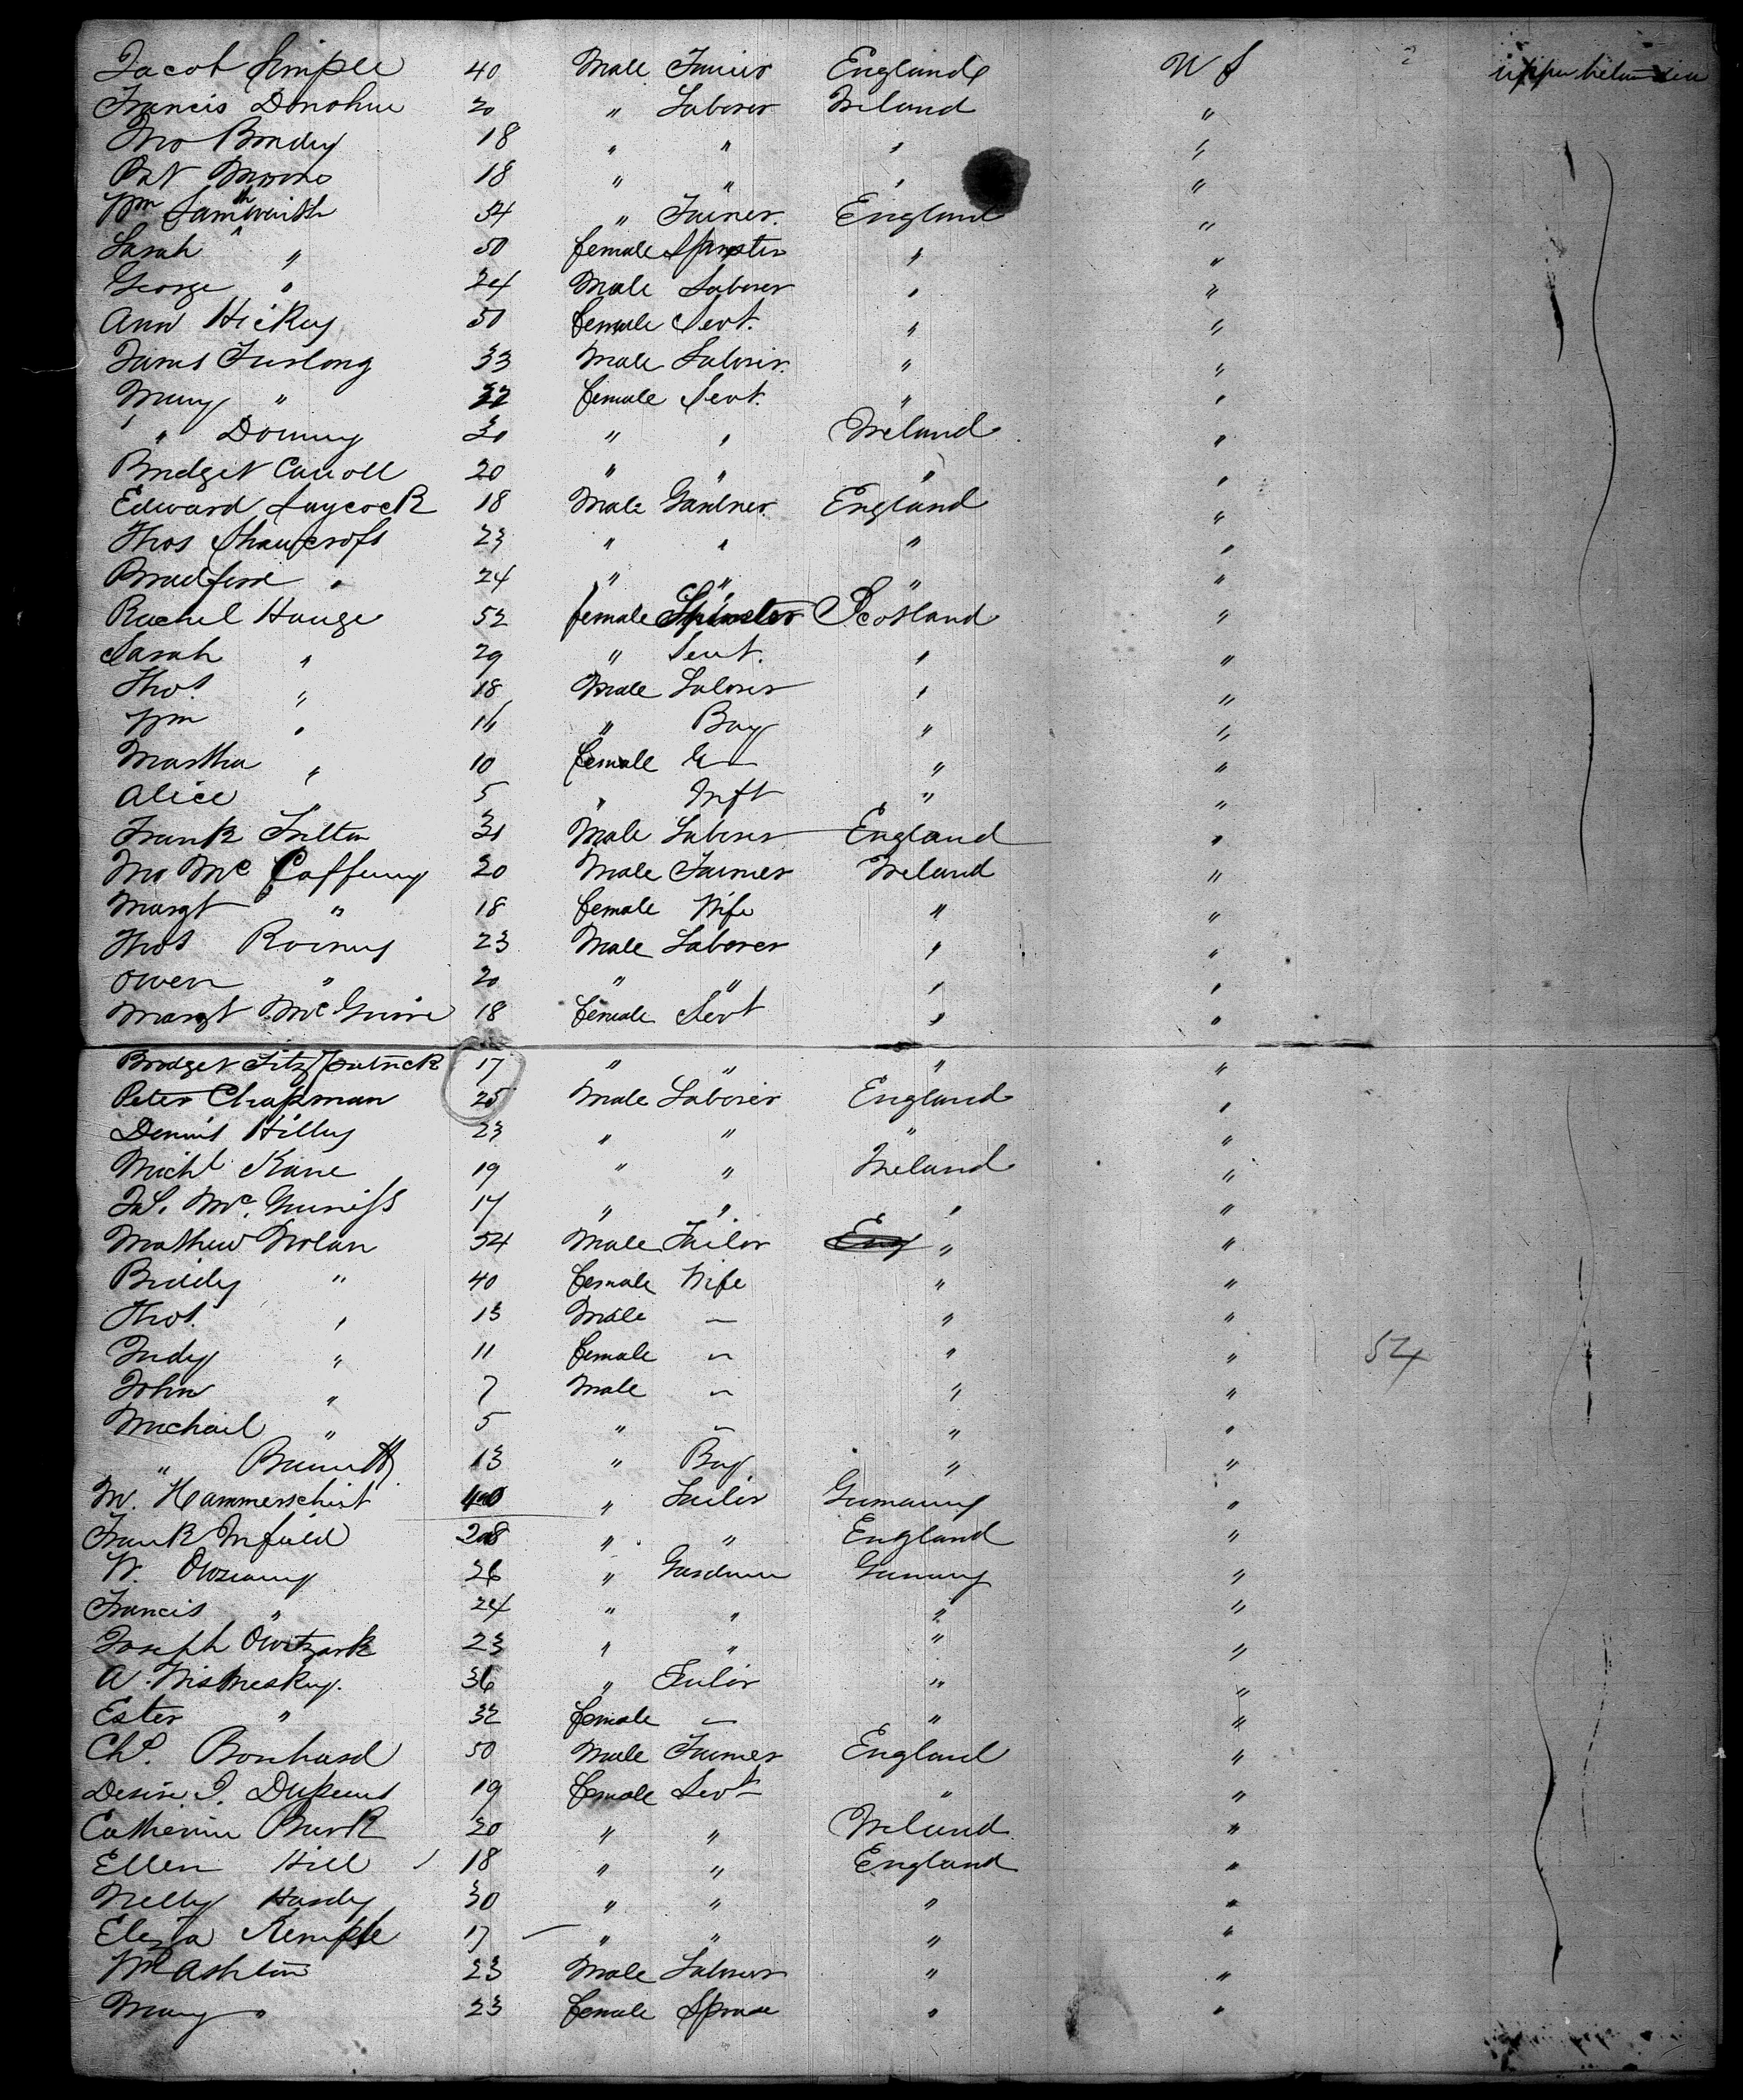 Jacob Simple 40 Male Farmer England U S
Francis Donohue 20 " Laborer Ireland "
Jno Brady 18 " " " "
Pat Moore 18 " " " "
Wm Farmer England "
Sarah " 50 female Spinster " "
George " 24 Male Laborer " "
Ann Hickey 50 female Servt. " "
James Furlong 33 Male Laborer " "
Mary " female Servt. " "
" Downey 30 " " Ireland "
Bridget Carroll 20 " " " "
Edward Laycock 18 Male Gardner England "
Thos Shawcroft 23 " " " "
Bradford " 24 " " " "
Rachel Hauge 52 female Spinster Scotland "
Sarah " 29 " Servt. " "
Thos. " 18 Male Laborer " "
Wm " " Boy " "
Martha " 10 female " "
Alice " 5 " Inft " "
Frank Male Laborer England "
Jno McCaffery 20 Male Farmer Ireland "
Margt " 18 female Wife " "
Thos Rooney 23 Male Laborer " "
Owen " 20 " " " "
Margt McGuire 18 female Servt " "
Bridget Fitzpatrick 17 " " " "
Peter Chapman 25 Male Laborer England "
Dennis Hilley 23 " " " "
Michl Kane 19 " " Ireland "
Mc. 17 " " " "
Mathew Nolan 54 Male Tailor Eng " "
Biddy " 40 female Wife " "
Thos. " 13 Male — " "
Judy " 11 female — " " 54
John " 7 Male — " "
Michael " 5 " — " "
" 13 " Boy " "
M. Hammerschist 40 " Tailor Germany "
Frank Infield 28 " " England "
W. 26 " Gardner Germany "
Francis " 24 " " " "
Joseph 23 " " " "
A. 36 " Tailor " "
Ester " 32 female — " "
Chs. Bonhard 50 Male Farmer England "
19 female Servt " "
Catherine Burk 20 " " Ireland "
Ellen Hill 18 " " England "
Nelly Hardy 30 " " " "
Eliza Kemple 17 " " " "
Wm Ashton 23 Male Laborer " "
Mary " 23 female Spouse " "